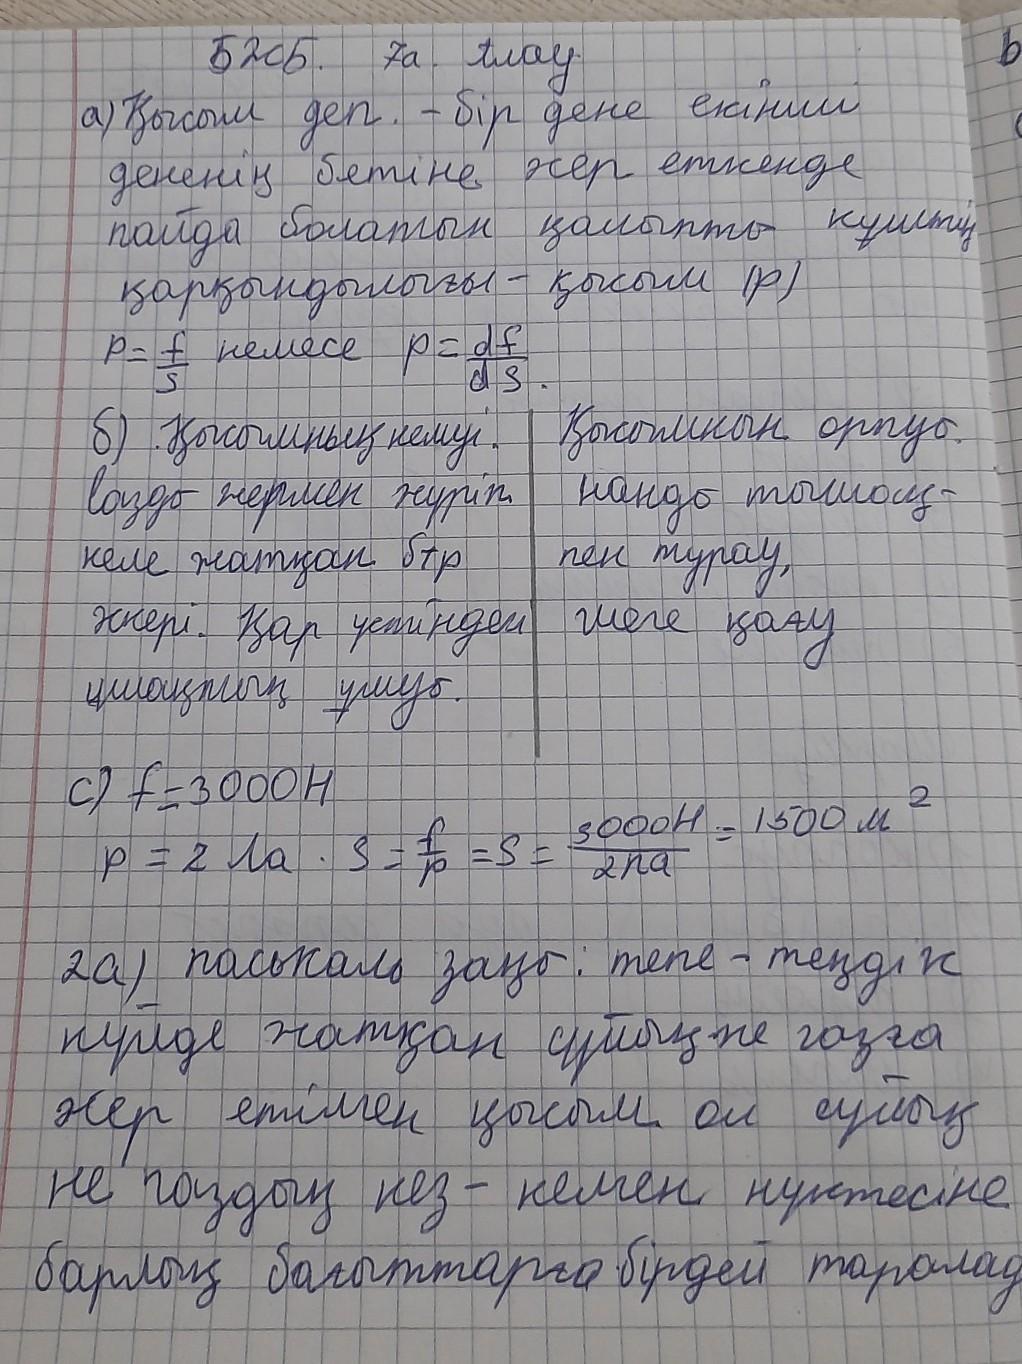 БЖБ. 7а. Алау
а) Қысым деп. - бір дене екінші
дененің бетіне әсер еткенде
пайда болатын қалыпты күштің
қарқындылығы - қысым (р)
P = f/s немесе p = df/ds.
б) Қысымның кемуі.
Лазды жермен жүріп
келе жатқан бтр
жкері. Қар үстінден
ұшақтың ұшуы.
Қысымнын ортуы.
нанды пышақ-
пен турау,
Шеге қағу
с) f = 3000Н
p = 2 Па . S = f/p = S = 3000Н/2Па = 1500 м²
2а) паськаль заңы: тепе - теңдік
күйде жатқан сұйық не газға
әсер етілген қысым ол сұйық
не газдың кез - келген нүктесіне
барлық бағыттарға бірдей таралад